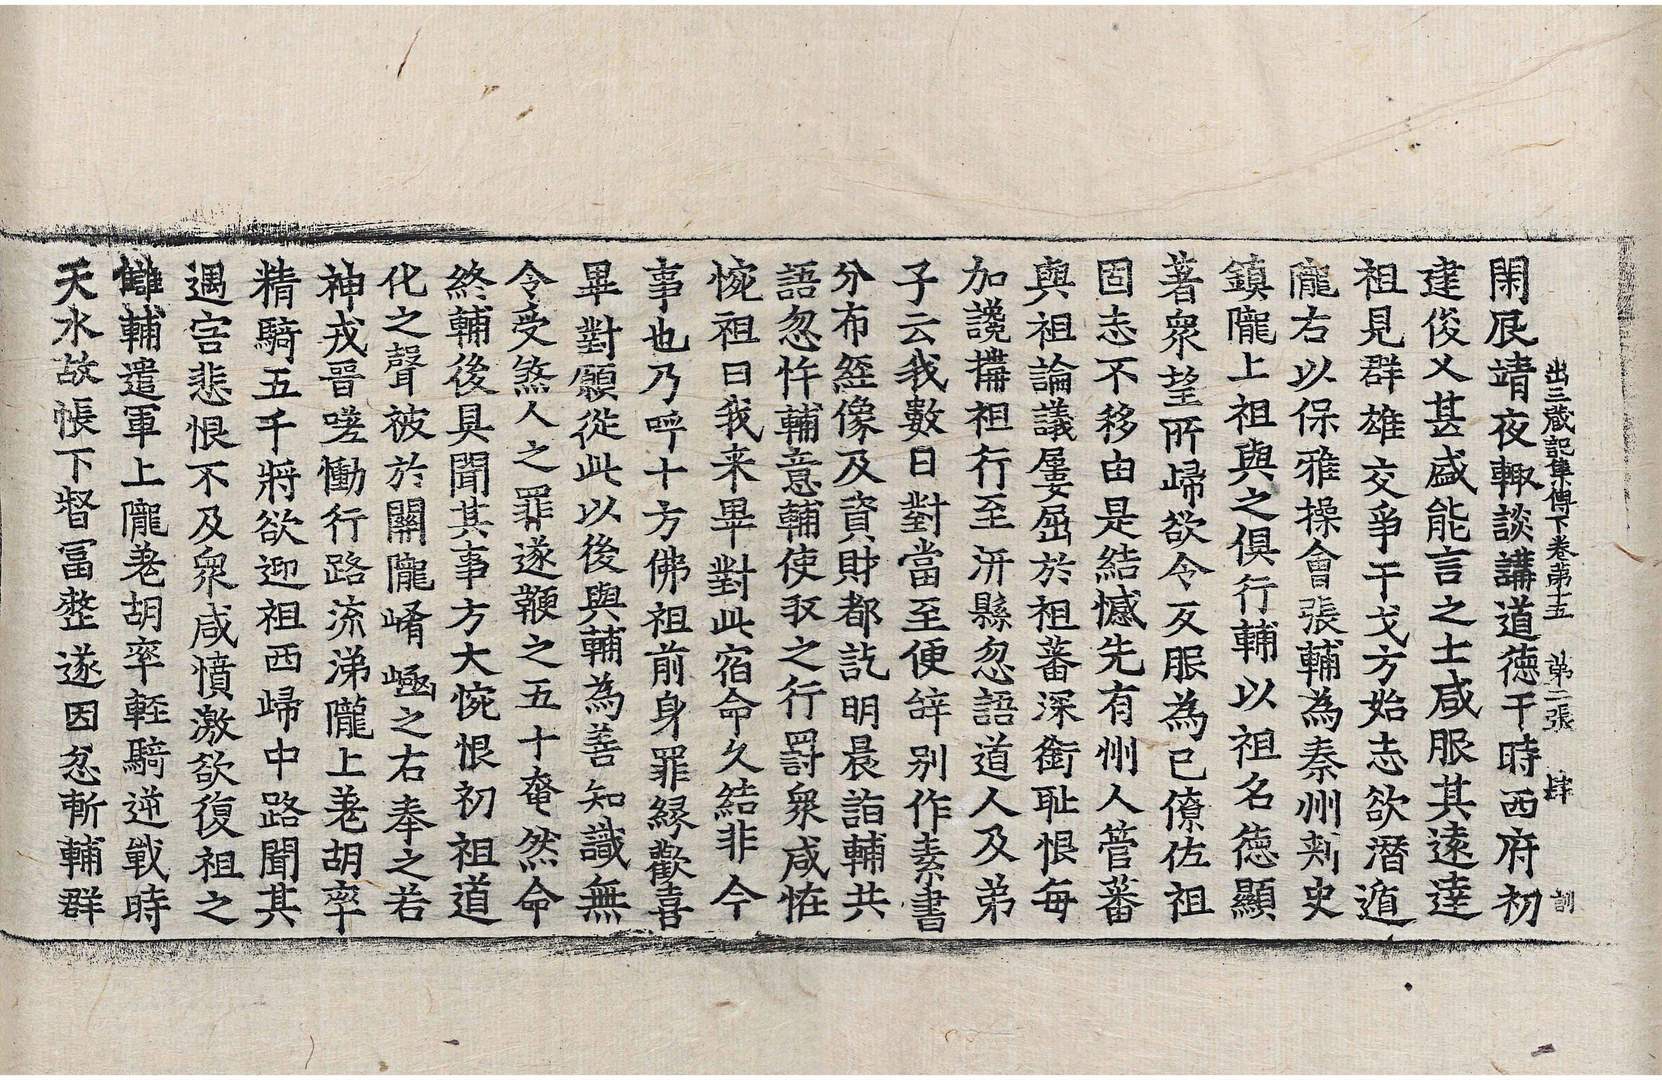 出三藏記集傳下卷第十五　第二張　肆　訓
閑辰靖夜輙談講道德干時西府初
建俊乂甚盛能言之士咸服其遠達
祖見群雄交爭干戈方始志欲潜遁
隴右以保雅操會張輔為秦州刾史
鎮隴上祖與之俱行輔以祖名德顯
著衆望所歸欲令反服為己僚佐祖
固志不移由是結憾先有州人管蕃
與祖論議屢屈於祖蕃深銜恥恨每
加讒搆祖行至汧縣忽語道人及弟
子云我數日對當至便辝别作素書
分布經像及資財都訖明晨詣輔共
語忽忤輔意輔使收之行罸衆咸恠
惋祖曰我来畢對此宿命久結非今
事也乃呼十方佛祖前身罪緣歡喜
畢對願從此以後與輔為善知識無
令受煞人之罪遂鞭之五十奄然命
終輔後具聞其事方大惋恨初祖道
化之聲被於關隴崤凾之右奉之若
神戎晉嗟慟行路流涕隴上羌胡率
精騎五千將欲迎祖西歸中路聞其
遇害悲恨不及衆咸憤激欲復祖之
讎輔遣軍上隴羌胡率輕騎逆戰時
天水故悵下督冨整遂因忿斬輔群